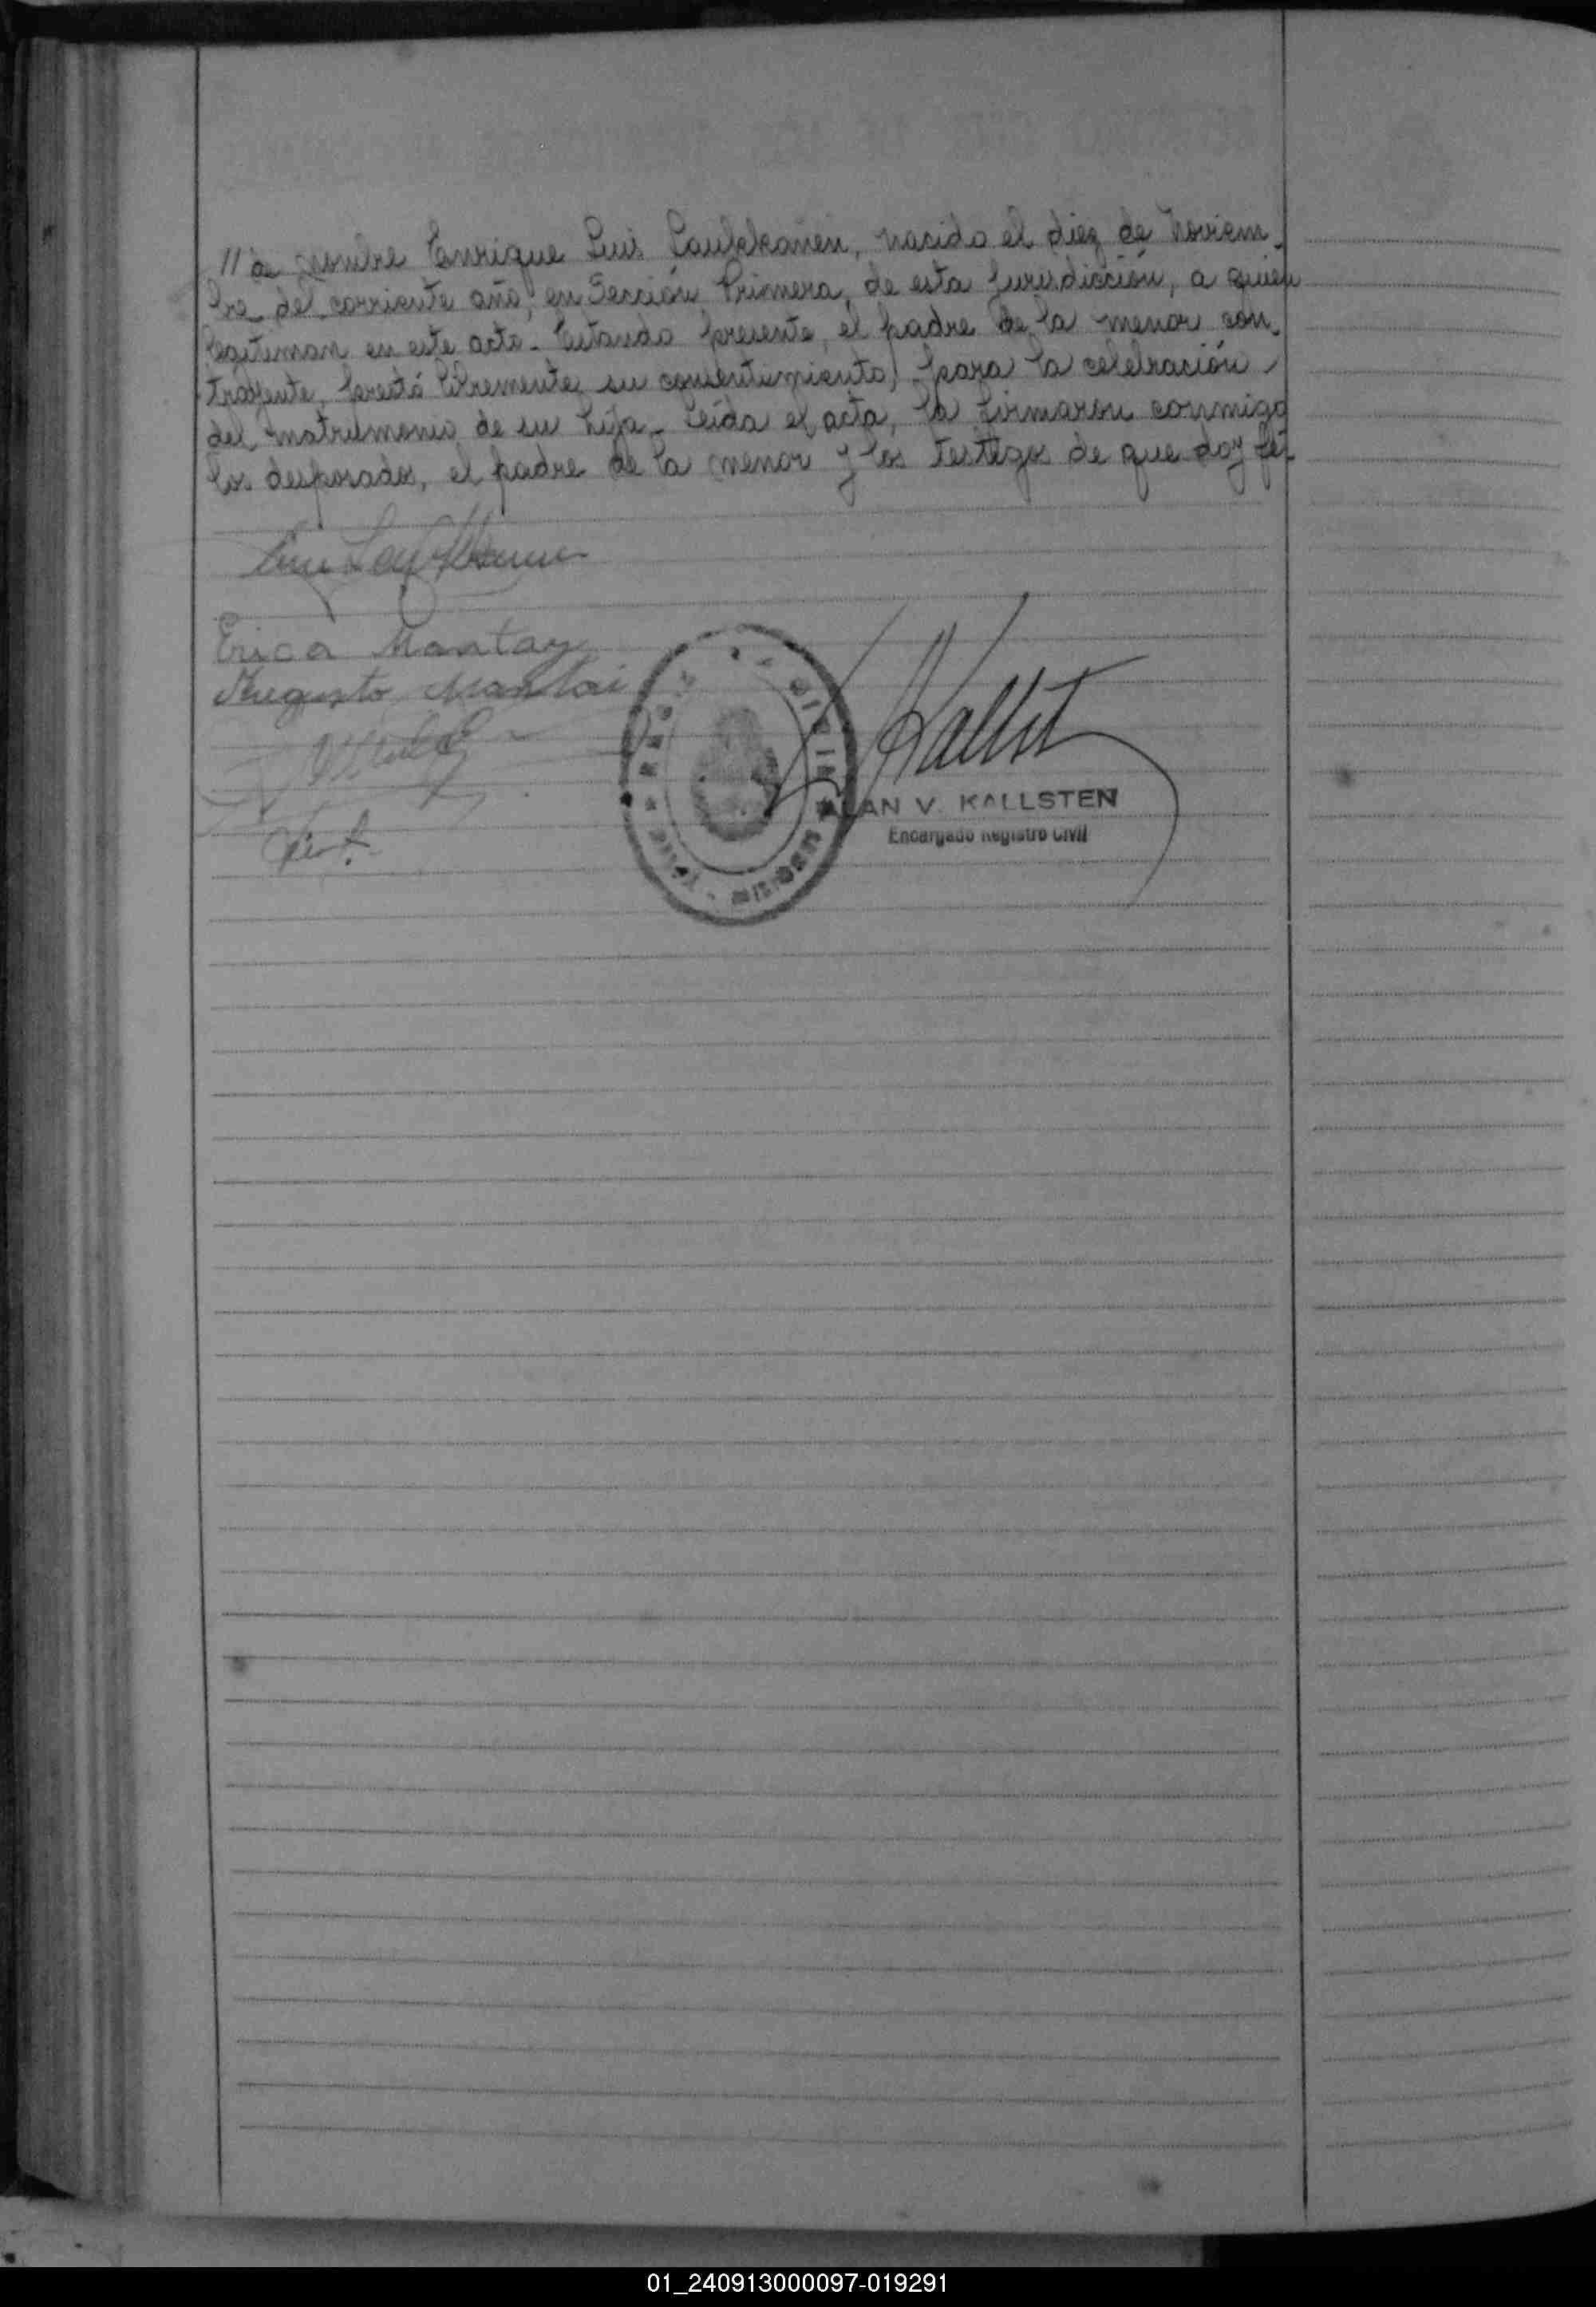 // de nombre Enrique Luis Laukkanen, nacido el diez de Noviem-
bre del corriente año, en Sección Primera, de esta jurisdicción, a quien
legitiman en este acto.- Estando presente, el padre de la menor con-
trayente, prestó libremente su consentimiento, para la celebración
del matrimonio de su hija.- Leída el acta, la firmaron conmigo
los desposados, el padre de la menor y los testigos de que doy fé.-
Erica Mantay
Augusto Mantai
ALAN V. KALLSTEN
Encargado Registro Civil
01_240913000097-019291